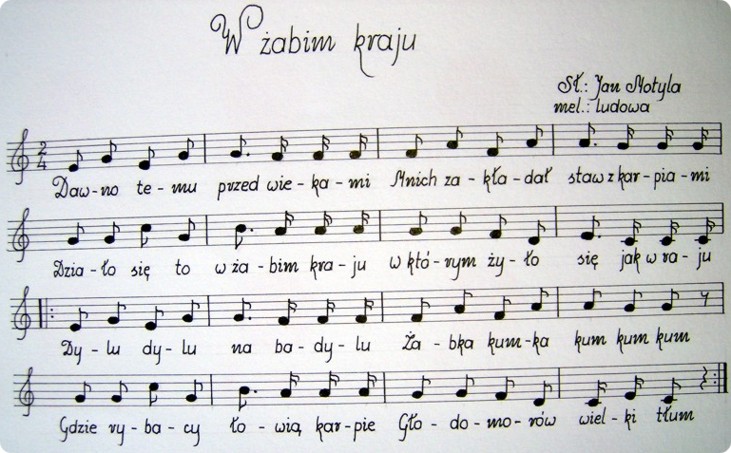 W żabim kraju
Sł.: Jan Motyla
mel.: ludowa
2
4
Daw-no te-mu przed wie-ka-mi Mnich za-kła-dał staw z kar-pia-mi
Dzia-ło się to w ża-bim kra-ju w któ-rym ży-ło się jak w ra-ju
Dy-lu dy-lu na ba-dy-lu Ża-bka kum-ka kum kum kum
Gdzie ry-ba-cy ło-wią kar-pie Gło-do-mo-rów wiel-ki tłum